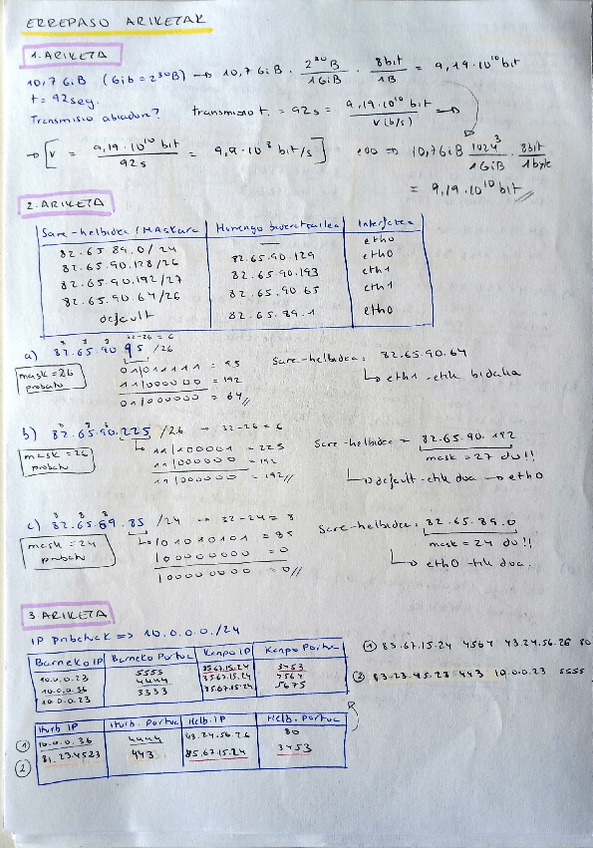 ERREPASO ARIKETAK
1. ARIKETA
10,7 GiB (Gib = 2³⁰B) → 10,7 GiB · 2³⁰B / 1GiB · 8bit / 1B = 9,19·10¹⁰ bit
t = 92seg.
Transmisio abiadura? transmisio t. = 92s = 9,19·10¹⁰ bit / v(b/s) →
→ [v = 9,19·10¹⁰ bit / 92s = 9,9·10⁸ bit/s] edo ⇒ 10,7GiB 1024³ / 1GiB · 8bit / 1byte
= 9,19·10¹⁰ bit //
2. ARIKETA
Sare-helbidea / Maskara Hurrengo bideratzailea Interfazea
82.65.89.0/24 — eth0
82.65.90.128/26 82.65.90.129 eth0
82.65.90.192/27 82.65.90.193 eth1
82.65.90.64/26 82.65.90.65 eth1
default 82.65.89.1 eth0
a) 82.65.90.95 /26 32-26 = 6
8 8 8
mask = 26 probatu
01011111 = 95
11000000 = 192
01000000 = 64 //
Sare-helbidea: 82.65.90.64
↳ eth1-etik bidalia
b) 82.65.90.225 /26 → 32-26 = 6
8 8 8
mask = 26 probatu
11100001 = 225
11000000 = 192
11000000 = 192 //
Sare-helbidea = 82.65.90.192
mask = 27 du!!
↳ default-etik doa → eth0
c) 82.65.89.85 /24 → 32-24 = 8
8 8 8
mask = 24 probatu
01010101 = 85
00000000 = 0
00000000 = 0 //
Sare-helbidea: 82.65.89.0
mask = 24 du!!
↳ eth0-tik doa.
3 ARIKETA
IP pribatuak => 10.0.0.0./24
Barneko IP Barneko Portua Kanpo IP Kanpo Portua
10.0.0.23 5555 85.67.15.24 3453
10.0.0.36 4444 85.67.15.24 4564
10.0.0.23 3333 85.67.15.24 5675
① 83.67.15.24 4564 43.24.56.26 80
② 83.23.45.23 443 10.0.0.23 5555
Iturb IP Iturb. Portua Helb. IP Helb. Portua
① 10.0.0.36 4444 43.24.56.26 80
② 81.23.45.23 443 85.67.15.24 3453